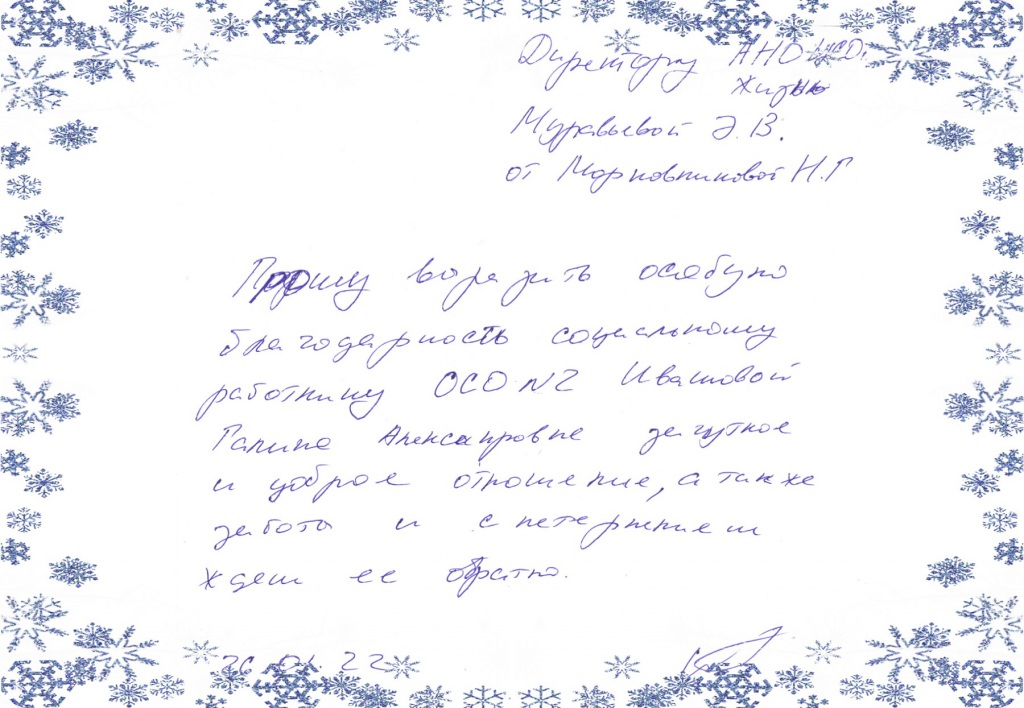 Директору АНО ЦСО
Жизнь
Муравьевой Э.В.
от Марковниковой Н.Г
Прошу выразить особую
благодарность социальному
работнику ОСО N2 Ивашовой
Галине Александровне за чуткое
и доброе отношение, а также
забота и с нетерпением
ждем ее обратно.
26.01.22